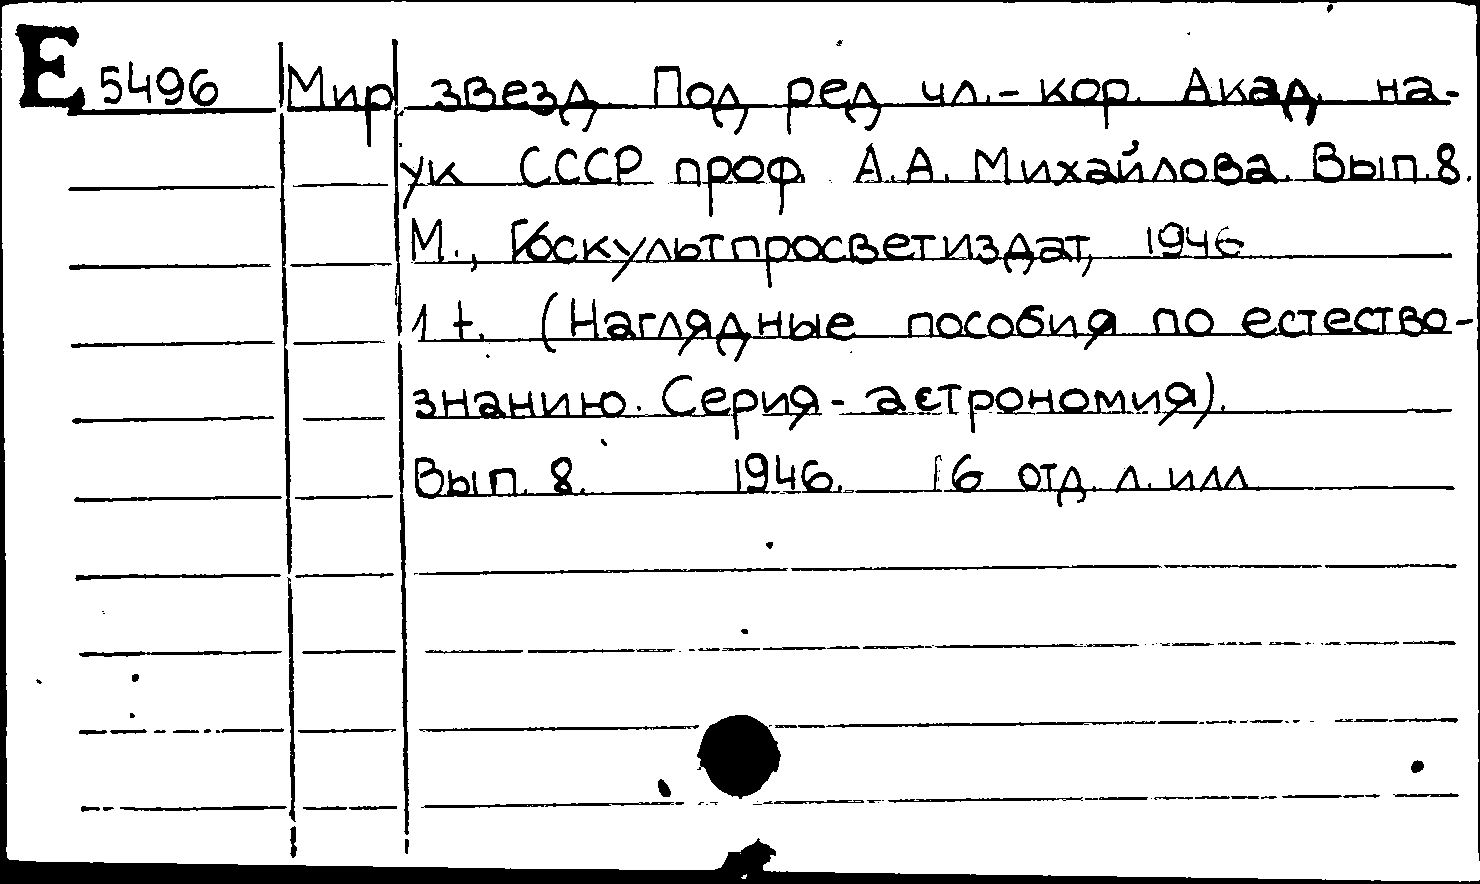 Е 5496 Мир звезд. Под ред чл.-кор. Акад. на-
ук СССР проф. А.А. Михайлова. Вып.8.
М., Госкультпросветиздат, 1946
1 t. (Наглядные пособия по естество-
знанию. Серия- астрономия).
Вып. 8. 1946. 16 отд. л. илл